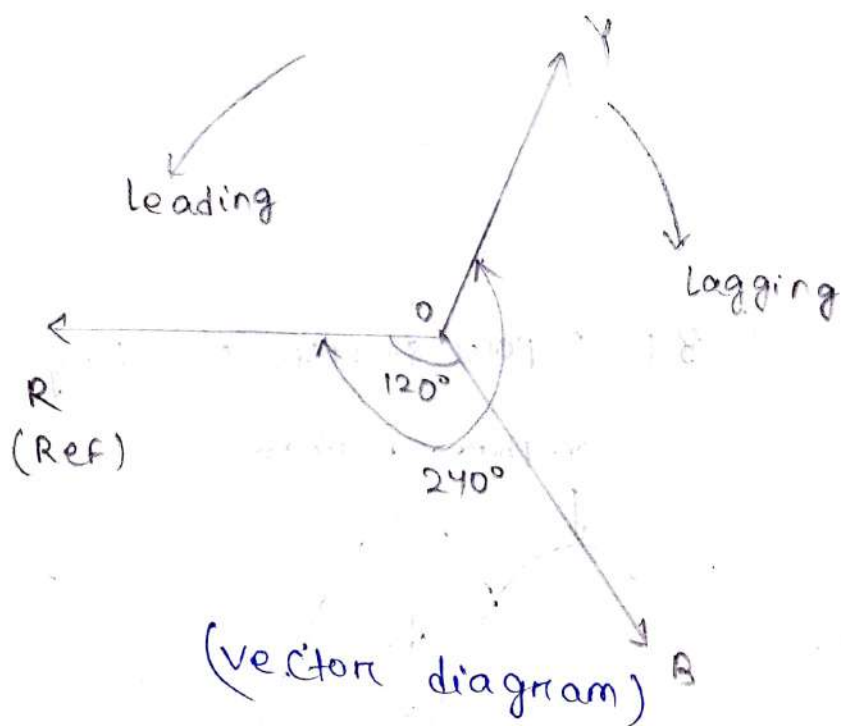 Y
leading
Lagging
O
R
(Ref)
120°
240°
(vector diagram)
B